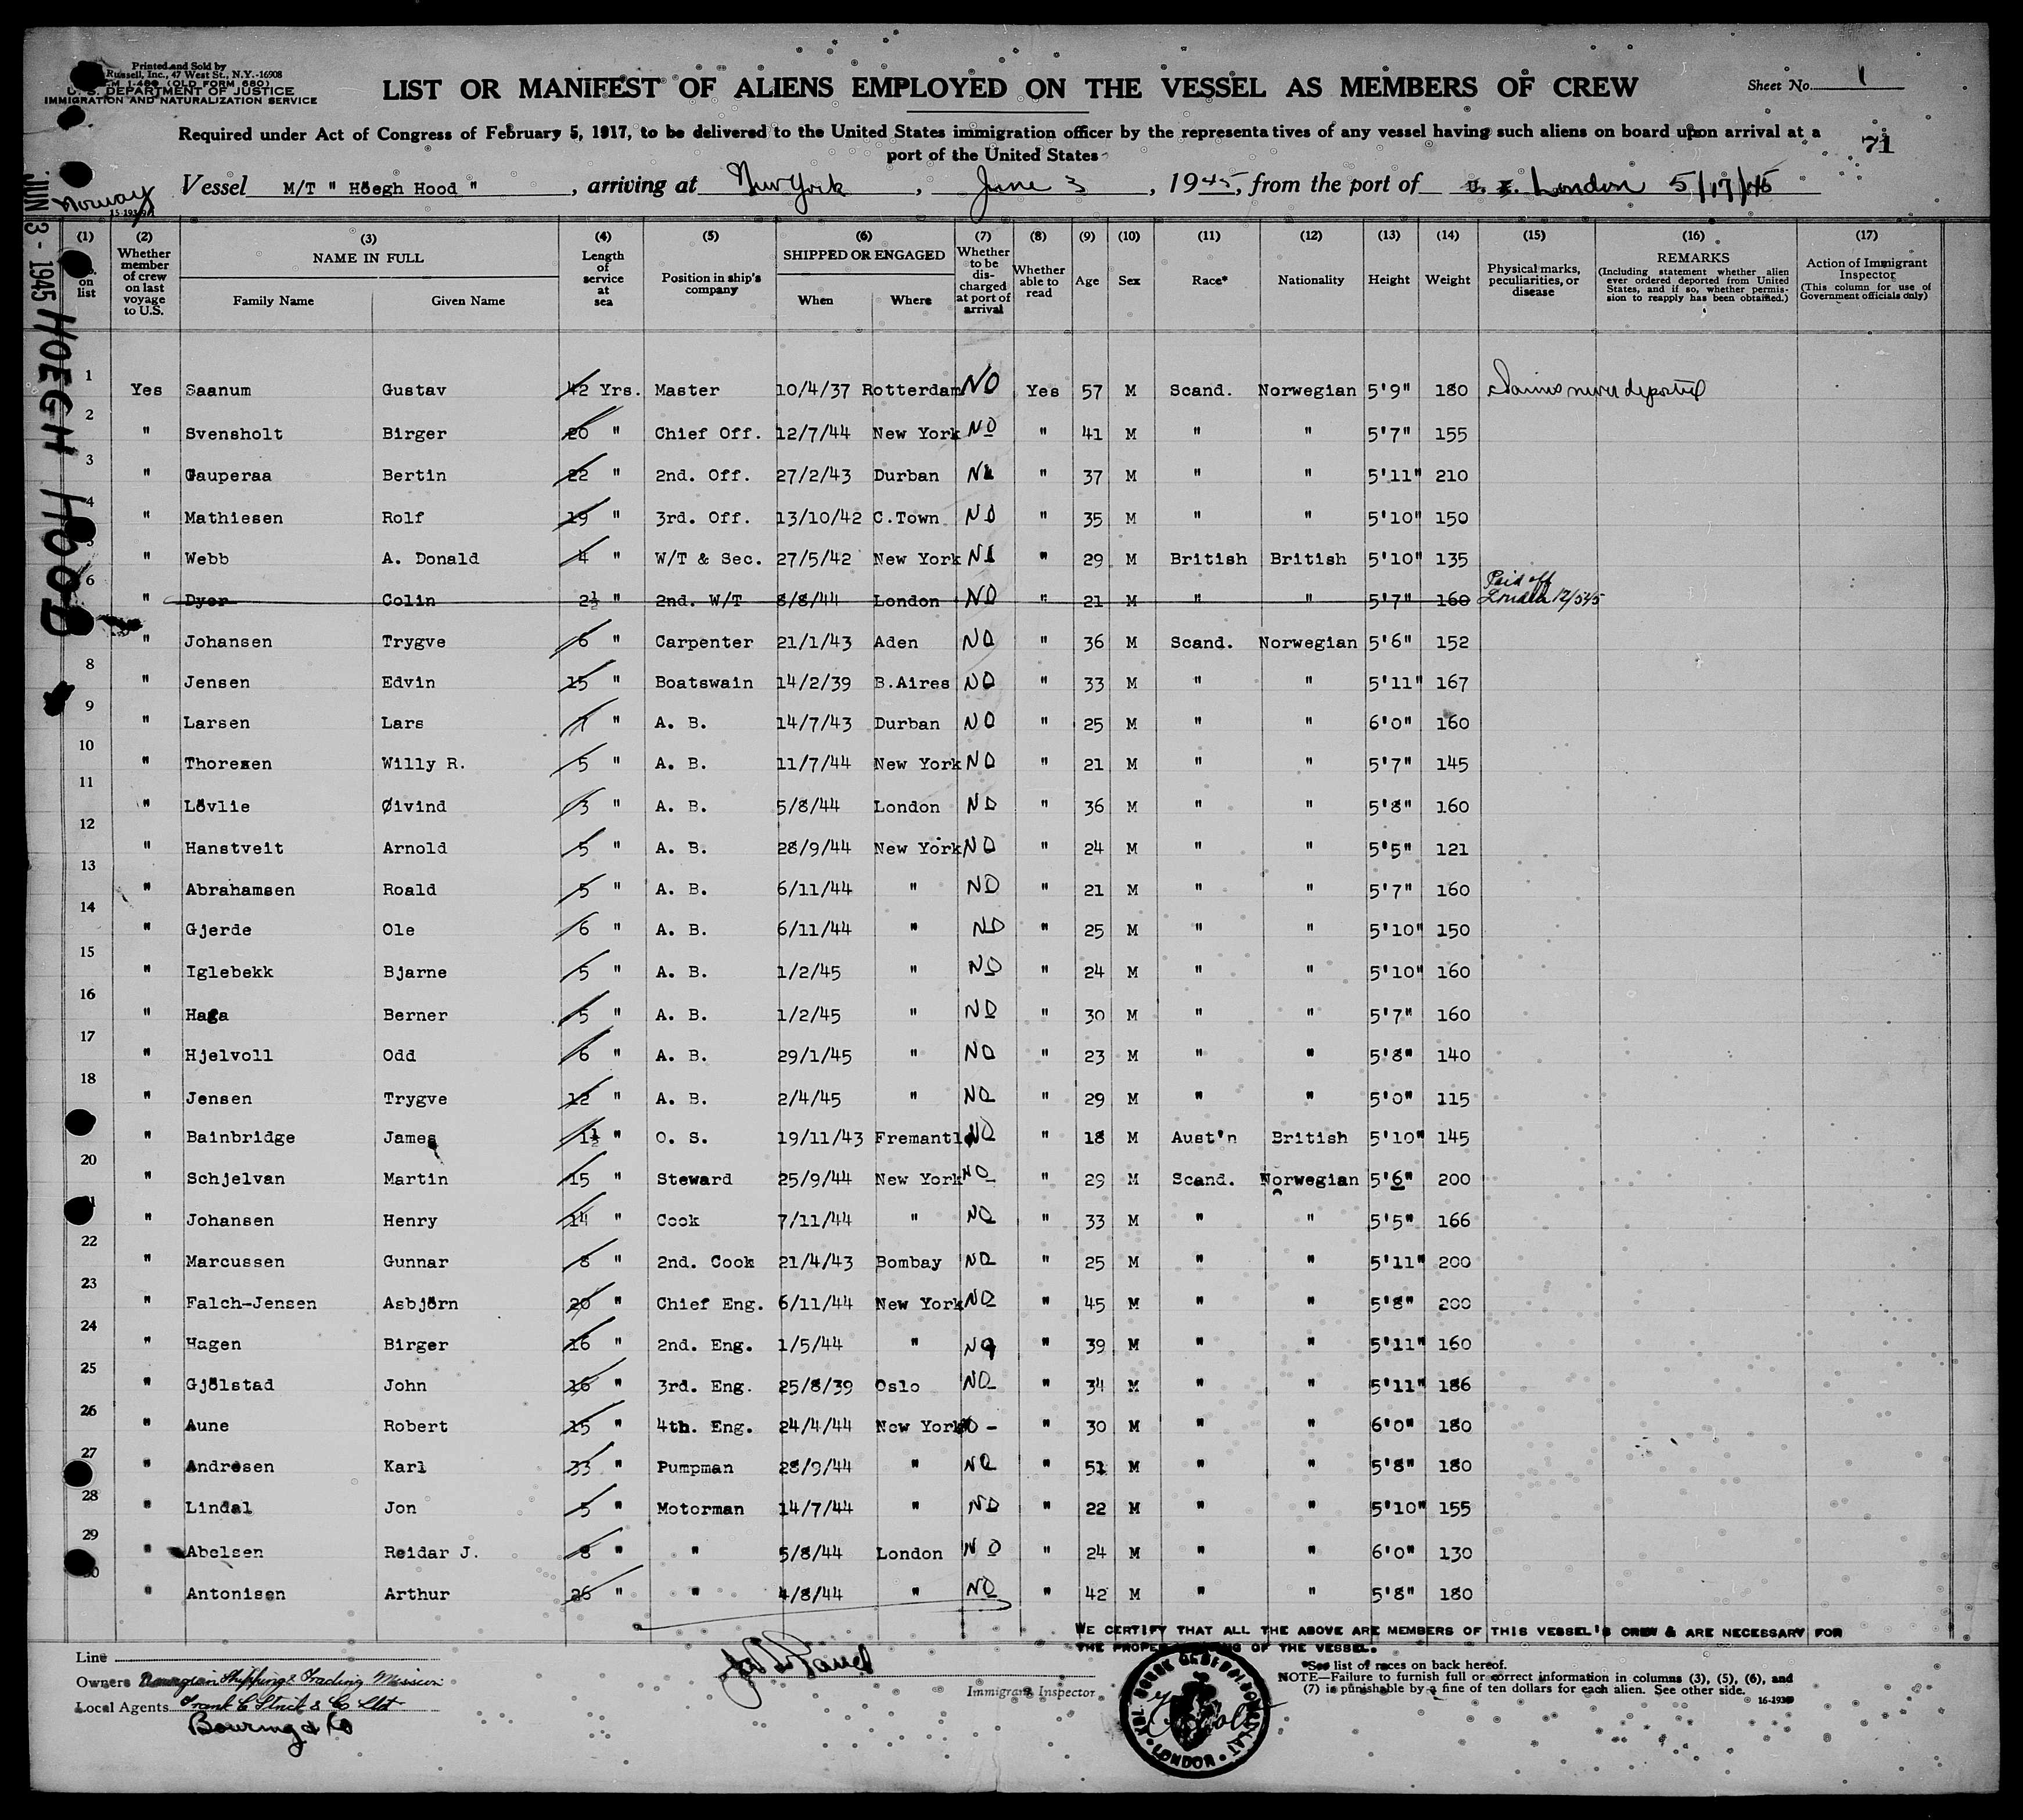 Printed and Sold by
Russell, Inc., 47 West St., N.Y.-16908
(OLD FORM 680)
U. S. DEPARTMENT OF JUSTICE
IMMIGRATION AND NATURALIZATION SERVICE
LIST OR MANIFEST OF ALIENS EMPLOYED ON THE VESSEL AS MEMBERS OF CREW
Sheet No. 1
Required under Act of Congress of February 5, 1917, to be delivered to the United States immigration officer by the representatives of any vessel having such aliens on board upon arrival at a
port of the United States
71
Norway
Vessel M/T " Höegh Hood ", arriving at New York, June 3, 1945, from the port of London 5/17/45
JUN 3 - 1945
HOEGH HOOD
(1) (2) (3) (4) (5) (6) (7) (8) (9) (10) (11) (12) (13) (14) (15) (16) (17)
on list
Whether member of crew on last voyage to U.S.
NAME IN FULL
Family Name Given Name
Length of service at sea
Position in ship's company
SHIPPED OR ENGAGED
When Where
Whether to be discharged at port of arrival
Whether able to read
Age
Sex
Race*
Nationality
Height
Weight
Physical marks, peculiarities, or disease
REMARKS
(Including statement whether alien ever ordered deported from United States, and if so, whether permission to reapply has been obtained.)
Action of Immigrant Inspector
(This column for use of Government officials only)
1 Yes Saanum Gustav 42 Yrs. Master 10/4/37 Rotterdam NO Yes 57 M Scand. Norwegian 5'9" 180 Claims never deported
2 " Svensholt Birger 20 " Chief Off. 12/7/44 New York NO " 41 M " " 5'7" 155
3 " Gauperaa Bertin 22 " 2nd. Off. 27/2/43 Durban NO " 37 M " " 5'11" 210
4 " Mathiesen Rolf 19 " 3rd. Off. 13/10/42 C.Town NO " 35 M " " 5'10" 150
5 " Webb A. Donald 4 " W/T & Sec. 27/5/42 New York NO " 29 M British British 5'10" 135
6 " Dyer Colin 2½ " 2nd. W/T 8/8/44 London NO " 21 M " " 5'7" 160 Paid off London 12/5/45
" Johansen Trygve 6 " Carpenter 21/1/43 Aden NO " 36 M Scand. Norwegian 5'6" 152
8 " Jensen Edvin 15 " Boatswain 14/2/39 B.Aires NO " 33 M " " 5'11" 167
9 " Larsen Lars 7 " A. B. 14/7/43 Durban NO " 25 M " " 6'0" 160
10 " Thoresen Willy R. 5 " A. B. 11/7/44 New York NO " 21 M " " 5'7" 145
11 " Lövlie Øivind 3 " A. B. 5/8/44 London NO " 36 M " " 5'8" 160
12 " Hanstveit Arnold 5 " A. B. 28/9/44 New York NO " 24 M " " 5'5" 121
13 " Abrahamsen Roald 5 " A. B. 6/11/44 " NO " 21 M " " 5'7" 160
14 " Gjerde Ole 6 " A. B. 6/11/44 " NO " 25 M " " 5'10" 150
15 " Iglebekk Bjarne 5 " A. B. 1/2/45 " NO " 24 M " " 5'10" 160
16 " Haga Berner 5 " A. B. 1/2/45 " NO " 30 M " " 5'7" 160
17 " Hjelvoll Odd 6 " A. B. 29/1/45 " NO " 23 M " " 5'8" 140
18 " Jensen Trygve 12 " A. B. 2/4/45 " NO " 29 M " " 5'0" 115
" Bainbridge James 1½ " O. S. 19/11/43 Fremantle NO " 18 M Aust'n British 5'10" 145
20 " Schjelvan Martin 15 " Steward 25/9/44 New York NO " 29 M Scand. Norwegian 5'6" 200
" Johansen Henry 14 " Cook 7/11/44 " NO " 33 M " " 5'5" 166
22 " Marcussen Gunnar 8 " 2nd. Cook 21/4/43 Bombay NO " 25 M " " 5'11" 200
23 " Falch-Jensen Asbjörn 20 " Chief Eng. 6/11/44 New York NO " 45 M " " 5'8" 200
24 " Hagen Birger 16 " 2nd. Eng. 1/5/44 " NO " 39 M " " 5'11" 160
25 " Gjölstad John 16 " 3rd. Eng. 25/8/39 Oslo NO " 34 M " " 5'11" 186
26 " Aune Robert 15 " 4th. Eng. 24/4/44 New York NO " 30 M " " 6'0" 180
27 " Andresen Karl 33 " Pumpman 28/9/44 " NO " 51 M " " 5'8" 180
28 " Lindal Jon 5 " Motorman 14/7/44 " NO " 22 M " " 5'10" 155
29 " Abelsen Reidar J. 8 " " 5/8/44 London NO " 24 M " " 6'0" 130
30 " Antonisen Arthur 26 " " 4/8/44 " NO " 42 M " " 5'8" 180
WE CERTIFY THAT ALL THE ABOVE ARE MEMBERS OF THIS VESSEL'S CREW & ARE NECESSARY FOR
THE PROPER OF THE VESSEL.
Line
Owners Norwegian Shipping & Trading Mission
Local Agents Frank C Strick & Co Ltd
Bowring & Co
Immigrant Inspector
*See list of races on back hereof.
NOTE—Failure to furnish full or correct information in columns (3), (5), (6), and
(7) is punishable by a fine of ten dollars for each alien. See other side.
KGL. NORSK GENERALKONSULAT
LONDON